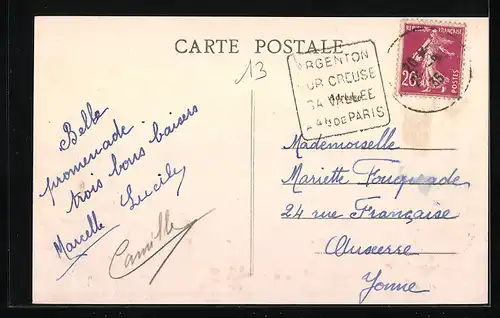 CARTE POSTALE
13
ARGENTON
SUR CREUSE
SA VALLEE
A 4h DE PARIS
REPUBLIQUE FRANÇAISE
20
POSTES
Belle
promenade
trois bons baisers
Marcelle Lucile
Camille
Mademoiselle
Mariette
24 rue Française
Auxerre
Yonne